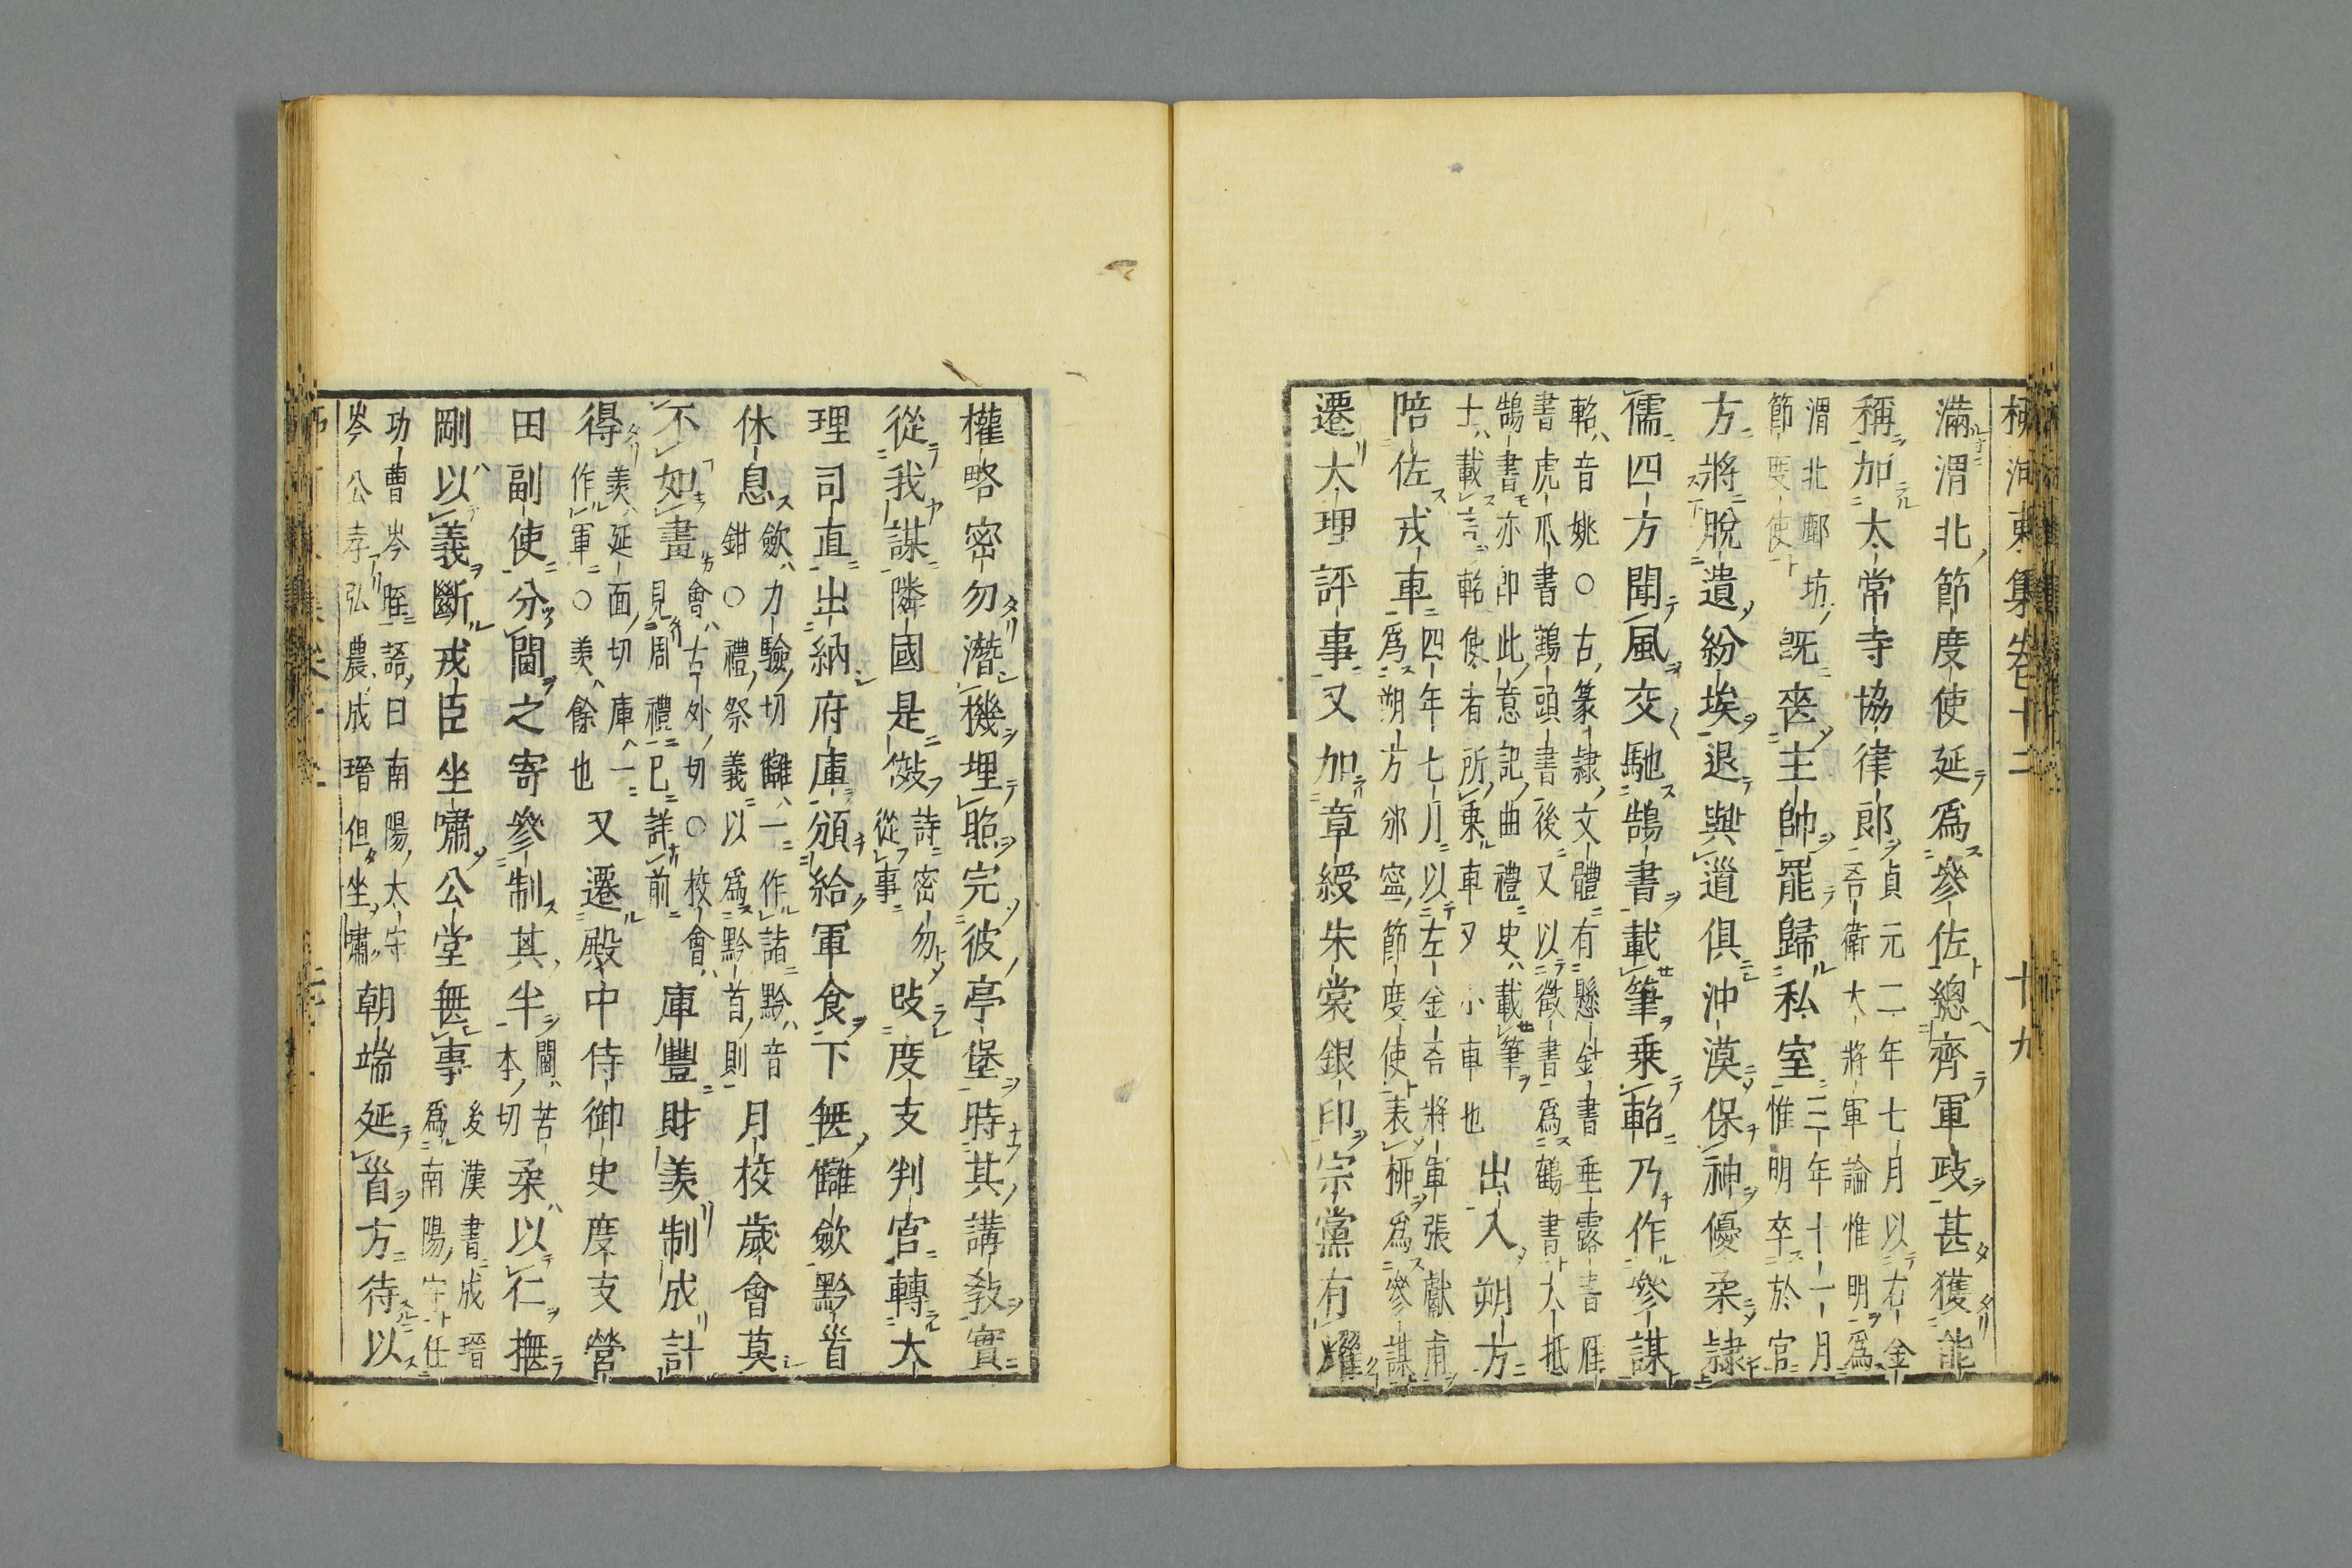 柳河東集卷十二　十九
滿渭北節度使延爲參佐總齊軍政甚獲能
稱加太常寺協律郎
貞元二年七月以右金
吾衛大將軍論惟明爲
渭北鄜坊
節度使
既喪主帥罷歸私室
三年十一月
惟明卒於官
方將脫遺紛埃退與道俱沖漠保神優柔隷
儒四方聞風交馳鵠書載筆乗軺乃作參謀
軺音姚○古篆隸文體有懸針書垂露書雁
書虎爪書鶴頭書後又以徵書爲鶴書大抵
鵠書亦即此意記曲禮史載筆
士載言軺使者所乗車又小車也
出入朔方
陪佐戎車
四年七月以左金吾將軍張獻甫
爲朔方邠寧節度使表柳爲參謀
遷大理評事又加章綬朱裳銀印宗黨有耀
權略密勿潛機埋照完彼亭堡時其講教實
從我謀隣國是傚
詩密勿
從事
改度支判官轉大
理司直出納府庫頒給軍食下無讎斂黔首
休息
斂力驗切讎一作諸黔音
鉗○禮祭義以爲黔首則
月校歲會莫
不如畫
會古外切○校會
見周禮已詳前
庫豐財羨制成計
得
羨延面切庫一
作軍○羨餘也
又遷殿中侍御史度支營
田副使分閫之寄參制其半
閫苦
本切
柔以仁撫
剛以義斷戎臣坐嘯公堂無事
後漢書成瑨
爲南陽守任
功曹岑晊語曰南陽太守
岑公孝弘農成瑨但坐嘯
朝端延首方待以